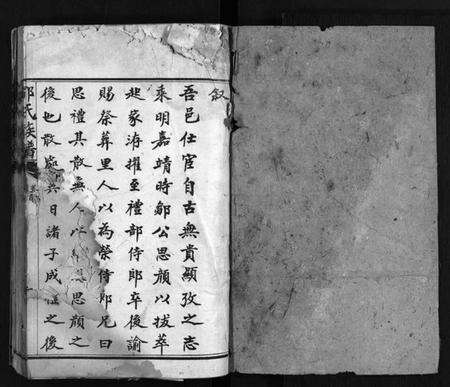 叙
吾邑仕宦自古無貴顯攷之志
乘明嘉靖時鄒公思顏以拔萃
起家洊擢至禮部侍郎卒後諭
賜祭葬里人以為榮侍郎兄曰
思禮其散無人以思顏之
後也散處日諸子成之後
氏族譜